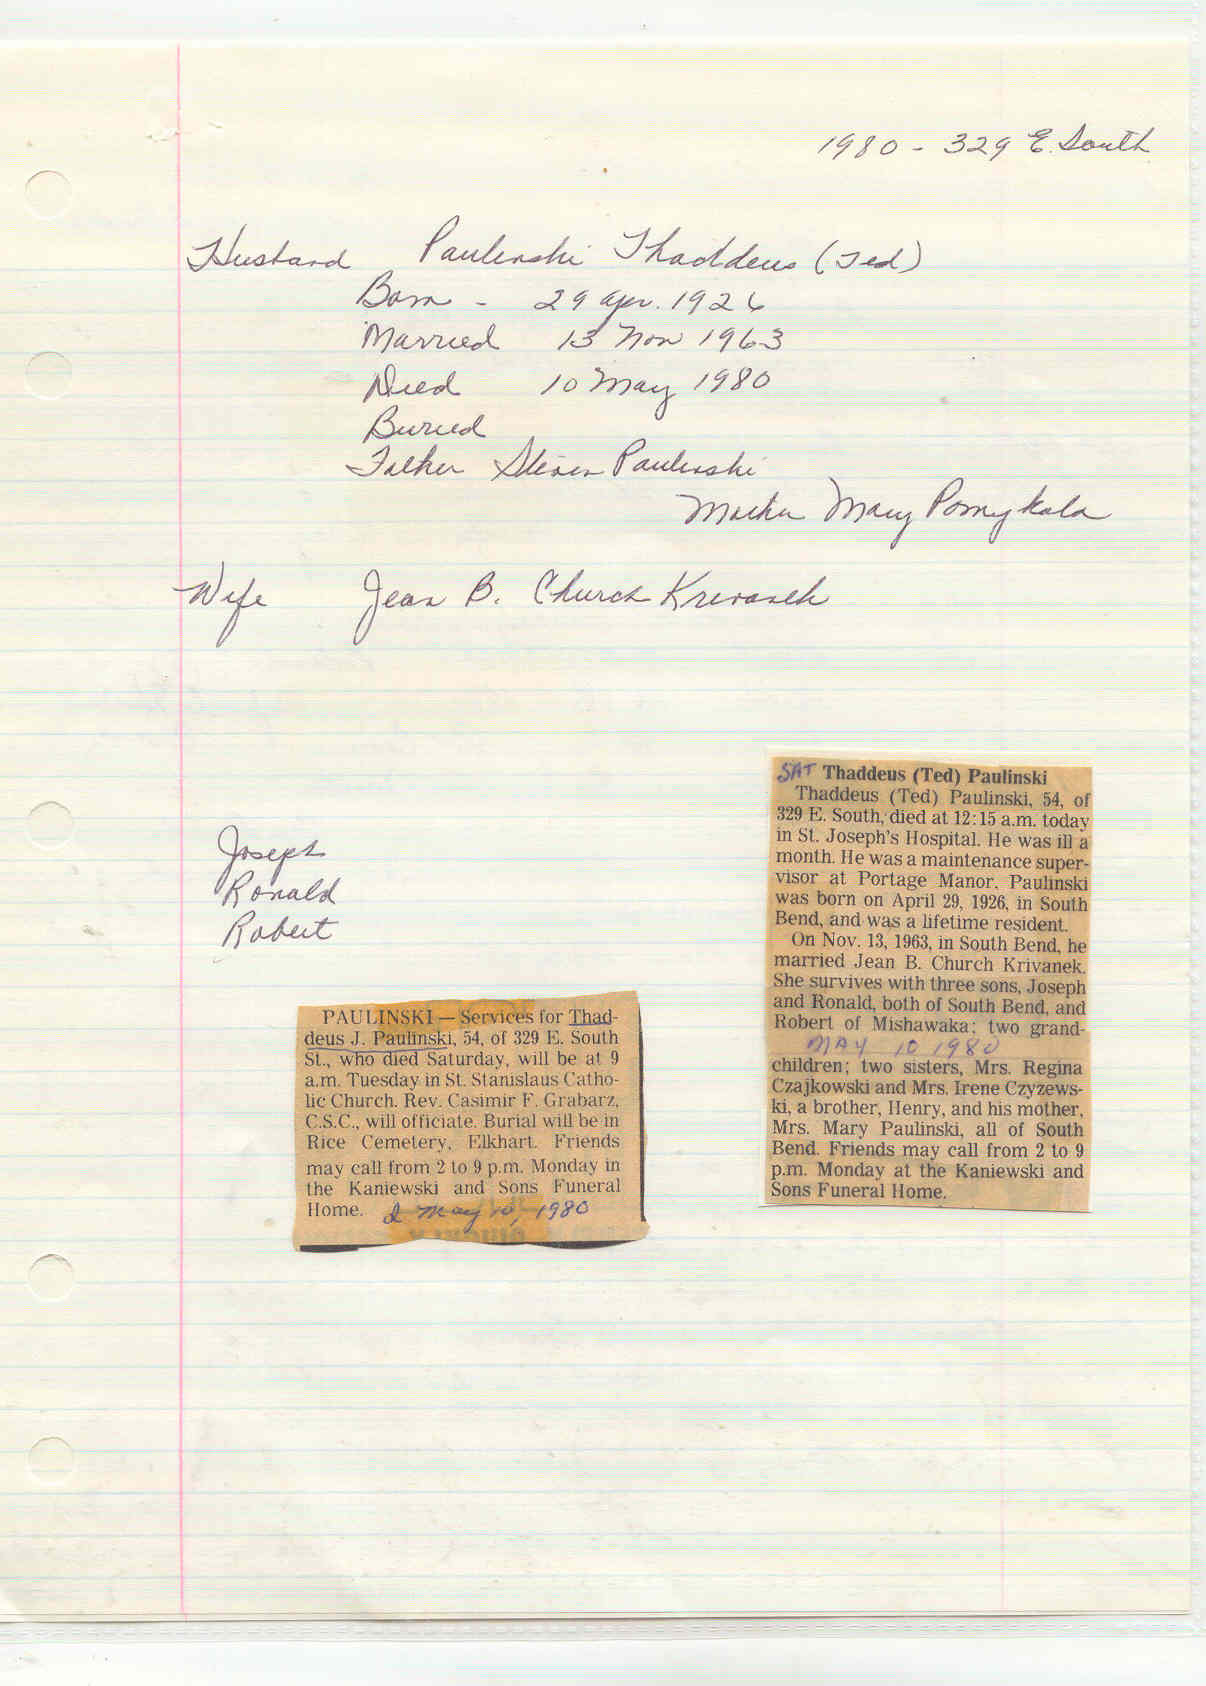 1980 - 329 E. South
Husband Paulinski Thaddeus (Ted)
Born - 29 Apr. 1926
Married 13 Nov 1963
Died 10 May 1980
Buried
Father Steven Paulinski
Mother Mary Pomykala
Wife Jean B. Church Krivanek
Joseph
Ronald
Robert
SAT Thaddeus (Ted) Paulinski
Thaddeus (Ted) Paulinski, 54, of
329 E. South, died at 12:15 a.m. today
in St. Joseph's Hospital. He was ill a
month. He was a maintenance super-
visor at Portage Manor. Paulinski
was born on April 29, 1926, in South
Bend, and was a lifetime resident.
On Nov. 13, 1963, in South Bend, he
married Jean B. Church Krivanek.
She survives with three sons, Joseph
and Ronald, both of South Bend, and
Robert of Mishawaka; two grand-
MAY 10 1980
children; two sisters, Mrs. Regina
Czajkowski and Mrs. Irene Czyzews-
ki, a brother, Henry, and his mother,
Mrs. Mary Paulinski, all of South
Bend. Friends may call from 2 to 9
p.m. Monday at the Kaniewski and
Sons Funeral Home.
PAULINSKI — Services for Thad-
deus J. Paulinski, 54, of 329 E. South
St., who died Saturday, will be at 9
a.m. Tuesday in St. Stanislaus Catho-
lic Church. Rev. Casimir F. Grabarz,
C.S.C., will officiate. Burial will be in
Rice Cemetery, Elkhart. Friends
may call from 2 to 9 p.m. Monday in
the Kaniewski and Sons Funeral
Home. d May 10, 1980